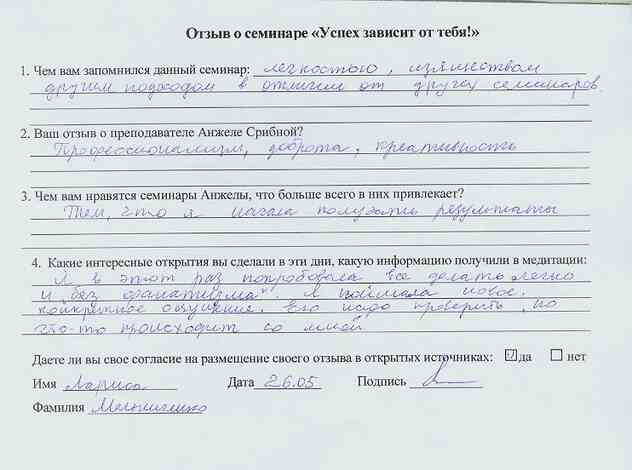 Отзыв о семинаре «Успех зависит от тебя!»
1. Чем вам запомнился данный семинар: легкостью, изяществом
другим подходом в отличии от других семинаров.
2. Ваш отзыв о преподавателе Анжеле Срибной?
Профессионализм, доброта, креативность
3. Чем вам нравятся семинары Анжелы, что больше всего в них привлекает?
Тем, что я начала получать результаты
4. Какие интересные открытия вы сделали в эти дни, какую информацию получили в медитации:
Я в этот раз попробовала все делать легко
и без фанатизма". Я поймала новое,
конкретное ощущение. Его надо проверить, но
что-то происходит со мной.
Даете ли вы свое согласие на размещение своего отзыва в открытых источниках: ☑ да ☐ нет
Имя Лариса Дата 26.05 Подпись
Фамилия Мельниченко